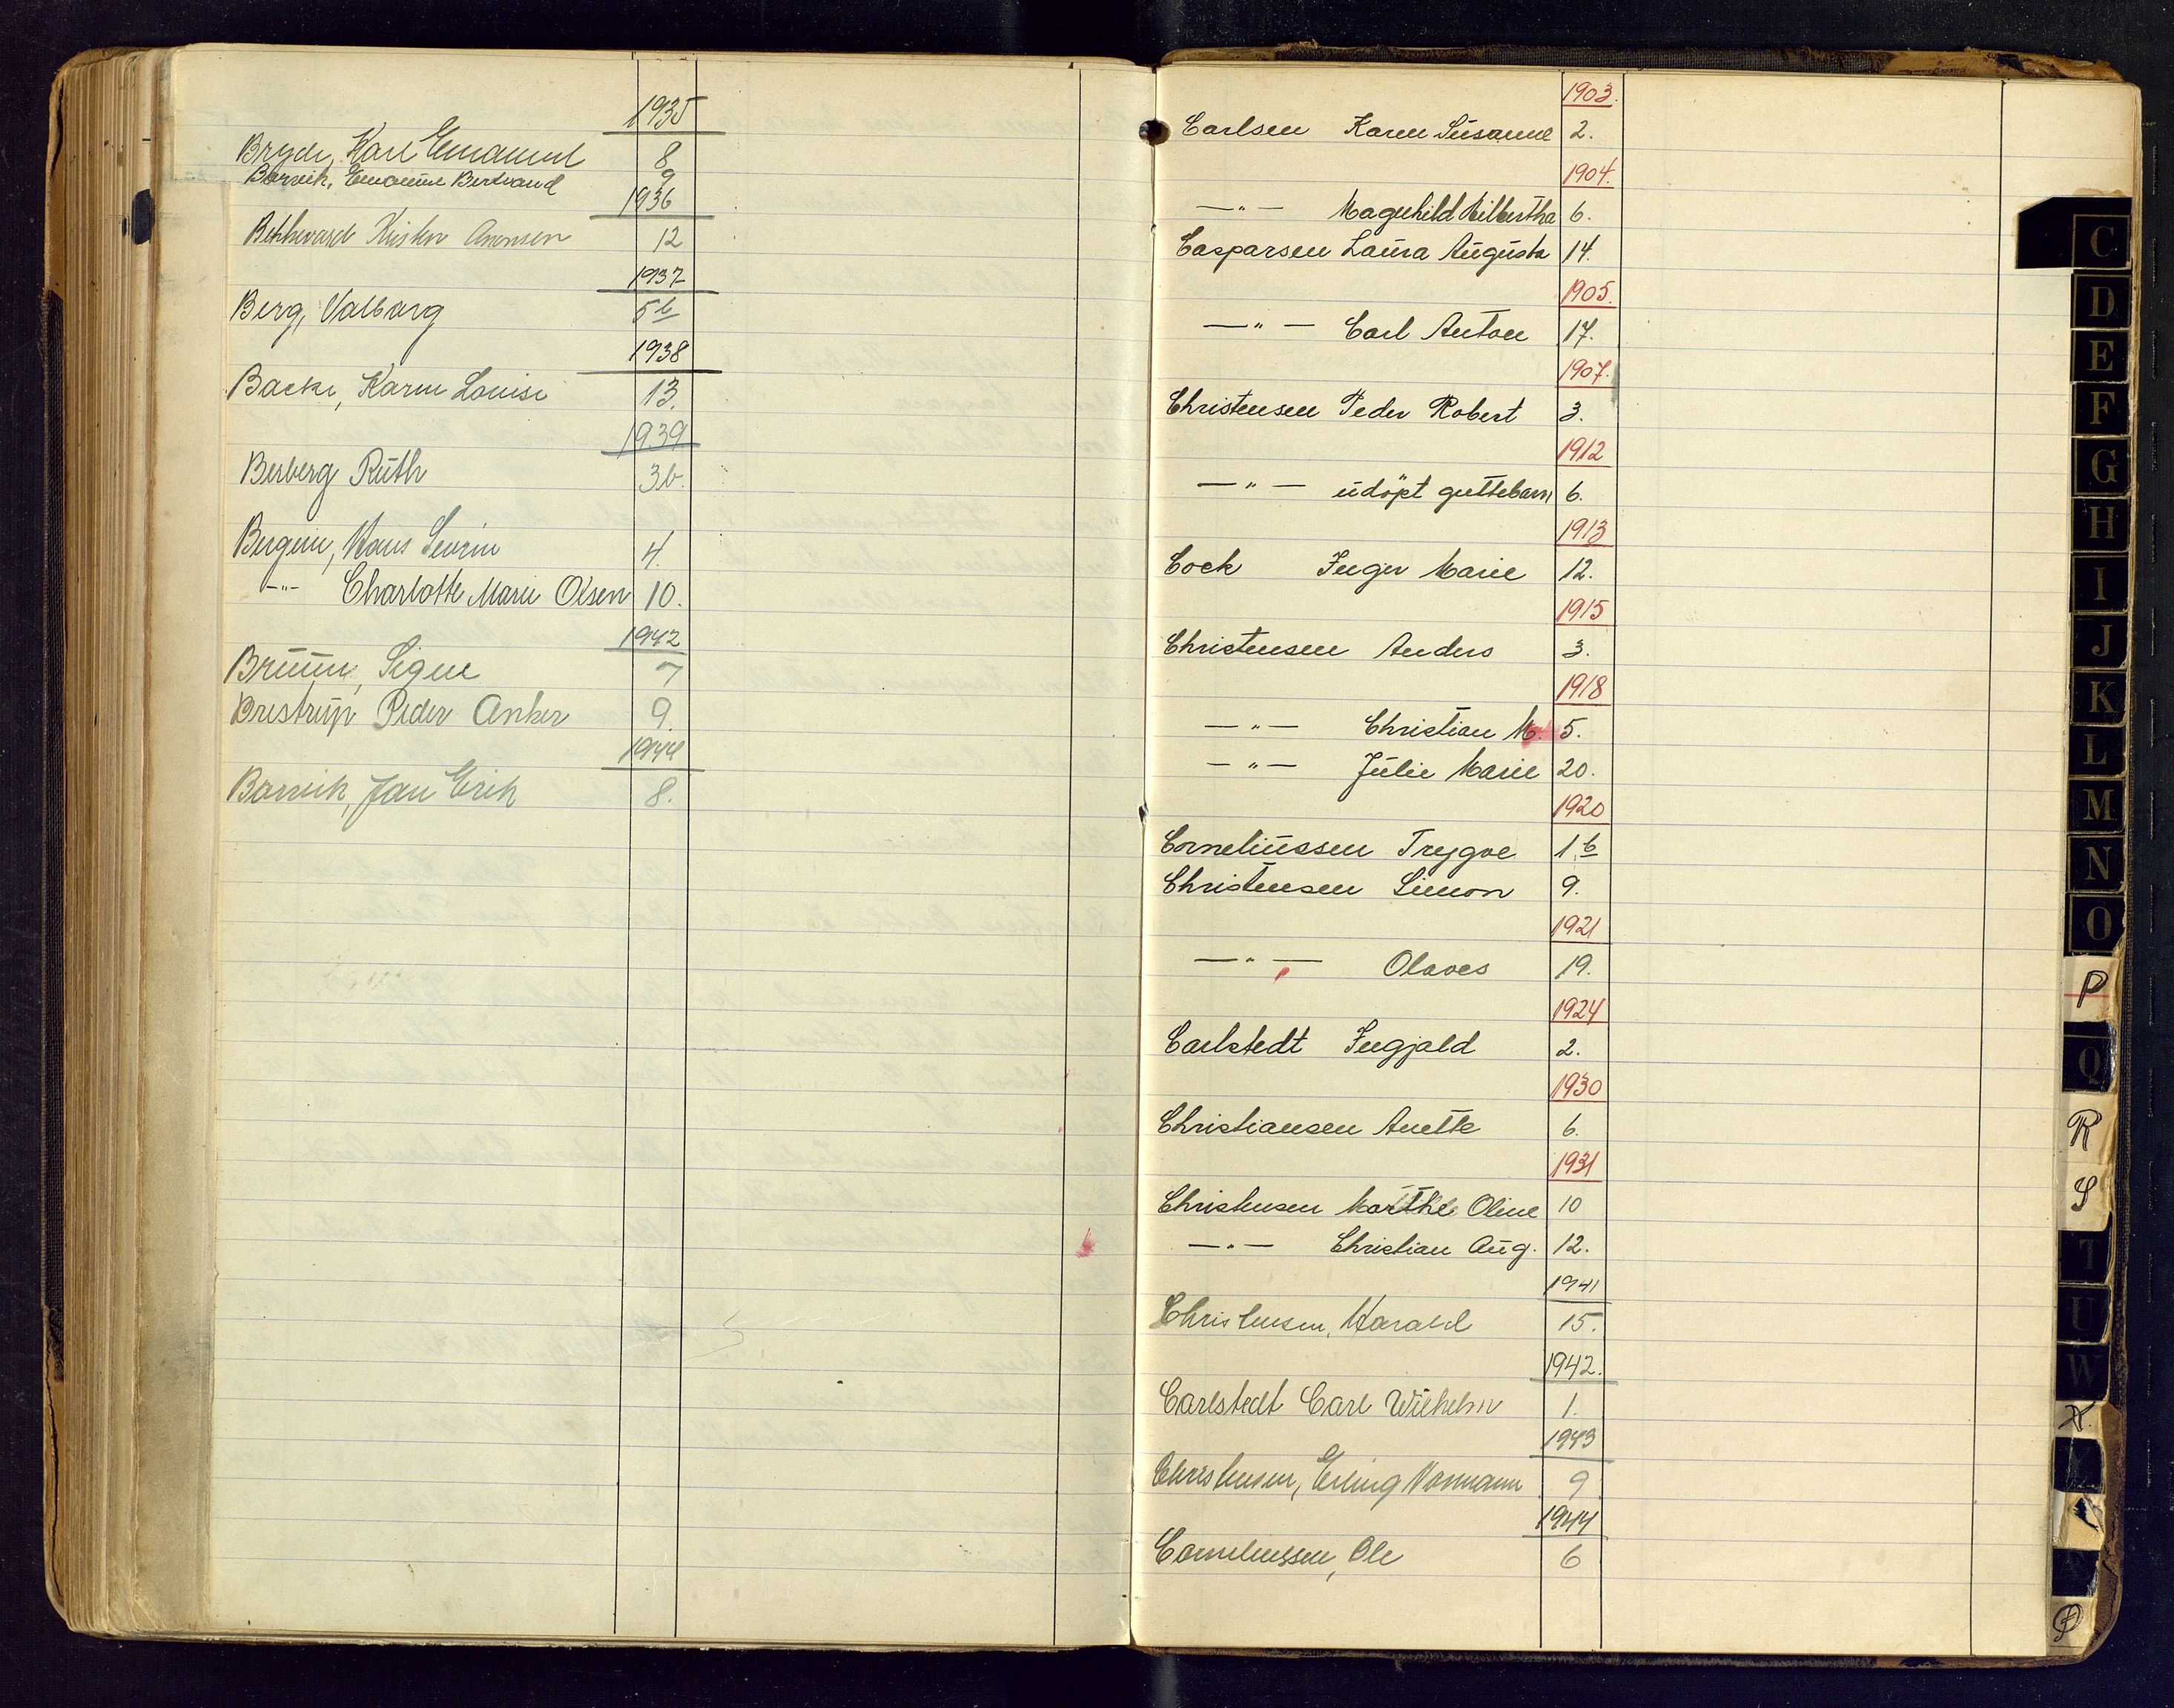 1935
Bryde, Karl Emanuel 8
Barvik, Emanuel Bertrand 9
1936
Kirsten Aronsen 12
1937
Berg, Valborg 5 b
1938
Backe, Karen Louise 13.
1939
Besberg Ruth 3 b.
Bergem, Hans Sevrin 4.
-"- Charlotte Marie Olsen 10.
1942
Bruun, Signe 7
Brestrup Peder Anker 9.
1944
Barvik, Jan Erik 8.
1903.
Carlsen Karen Susanne 2.
1904.
-"- Magnhild Hilbertha 6.
Casparsen Laura Augusta 14.
1905.
-"- Carl Anton 17.
1907.
Christensen Peder Robert 3.
1912
-"- udöpt guttebarn 6.
1913
Cock Inger Marie 12.
1915
Christensen Anders 3.
1918
-"- Christian M. 5.
-"- Julie Marie 20.
1920
Corneliussen Trygve 1 b
Christensen Simon 9.
1921
-"- Olaves 19.
1924
Carlstedt Ingjald 2.
1930
Christiansen Anette 6.
1931
Christensen Marthe Oline 10
-"- Christian Aug. 12.
1941
Christensen, Harald 15.
1942.
Carlstedt Carl Wilhelm 1.
1943
Christensen, Erling Normann 9
1944
Corneliussen, Ole 6
C
D
E
F
G
H
I
J
K
L
M
N
O
P
Q
R
S
T
U
W
X
Y
Ø